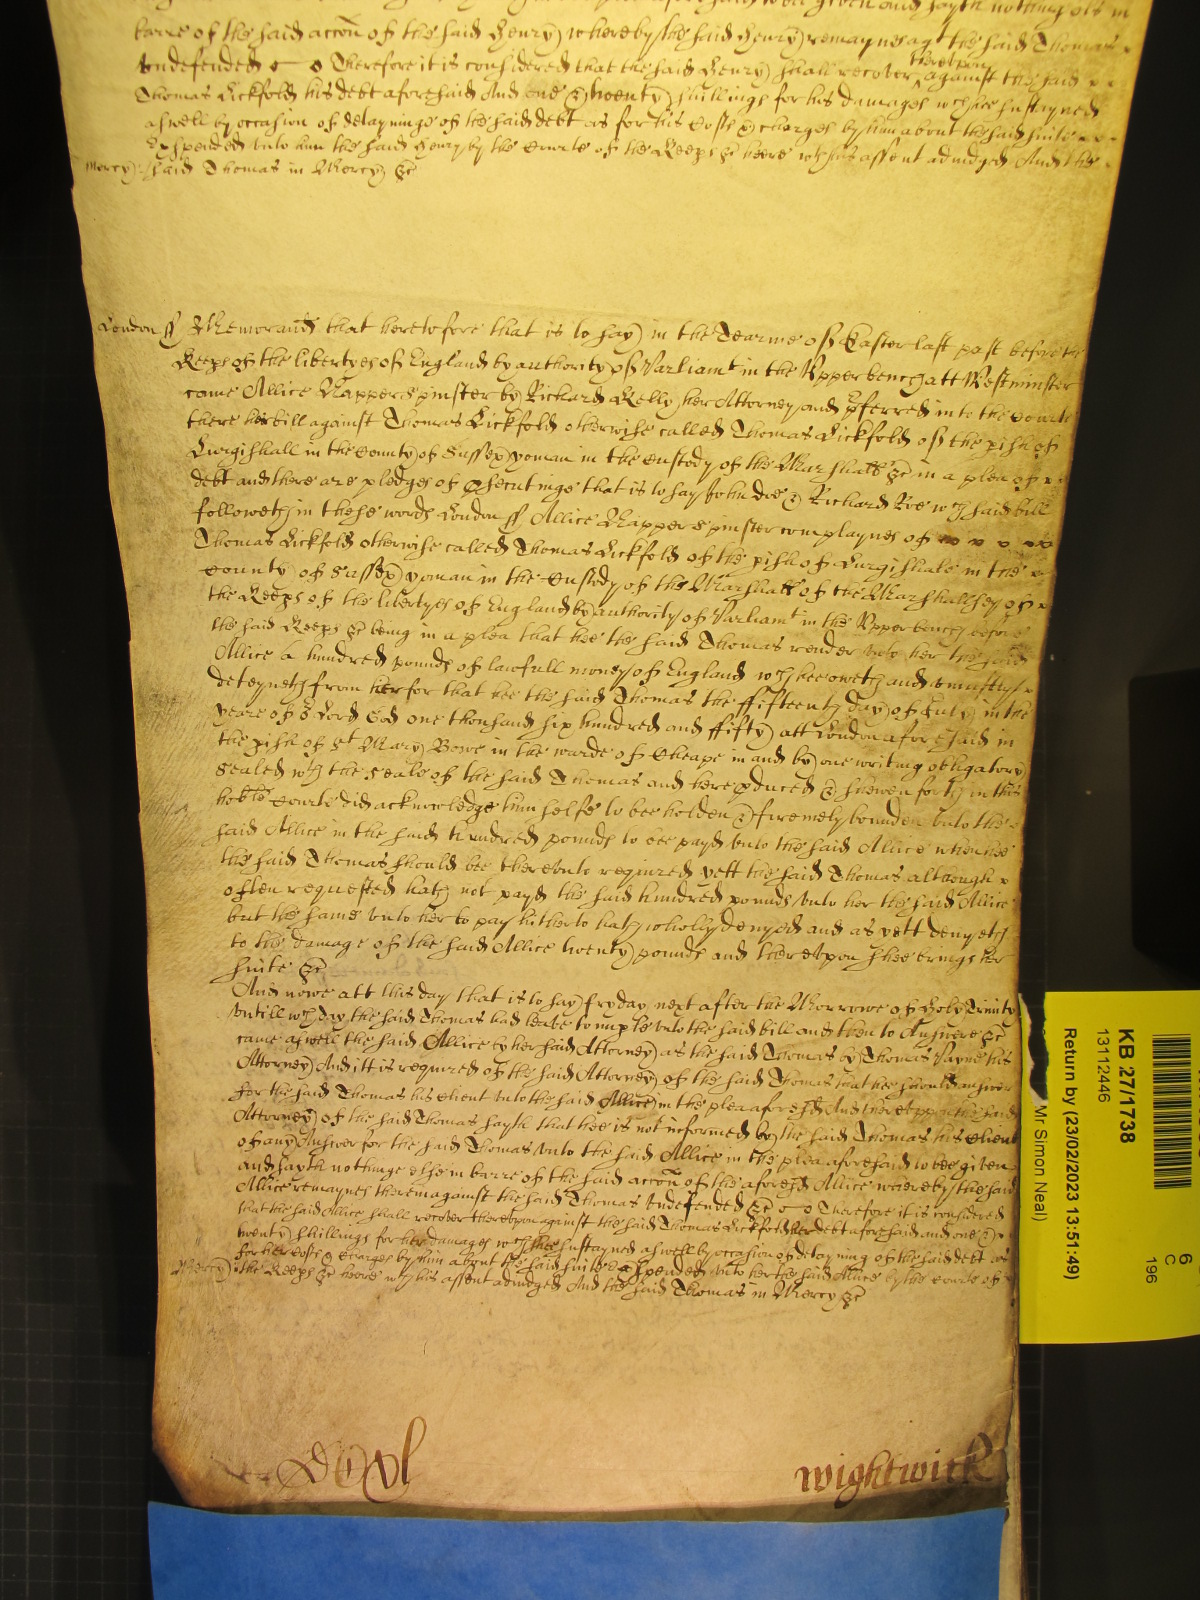 barre of the said accon of the said Henry whereby the said Henry remaynes agt the said Thomas
undefended Therefore it is considered that the said Henry shall recover thereupon against the said
Thomas Lickfold his debt aforesaid And one & twenty shillings for his damages wch hee susteyned
aswell by occasion of delayninge of the said debt as for his Costs & charges by him about the said suite
Expended unto him the said Henry by the Courte of the Keeps &c heere wth his assent adiudged And the
Mercy said Thomas in Mercy &c
London ss Memorand that heretofore that is to say in the Tearme of Easter last past before the
Keeps of the libertyes of England by authority of Parliamt in the Upper bench att Westminster
came Allice Napper spinster by Richard Kelly her Attorney and pferred into the Courte
there her bill against Thomas Lickfold otherwise called Thomas Lickfold of the pish of
Lurgishall in the County of Sussex yoman in the Custody of the Marshall &c in a plea of
debt and there are pledges of psecutinge that is to say John Doe & Richard Roe wch said bill
followeth in these words London ss Allice Napper spinster complaynes of
Thomas Lickfold otherwise called Thomas Lickfold of the pish of Lurgishale in the
County of Sussex yoman in the Custody of the Marshall of the Marshallsey of
the Keeps of the libertyes of England by authority of Parliamt in the Upper bench before
the said Keeps &c being in a plea that hee the said Thomas render unto her the said
Allice a hundred pounds of lawfull money of England wch hee oweth and uniustly
deteyneth from her for that hee the said Thomas the ffifteenth day of July in the
yeare of or Lord God one thousand six hundred and ffifty att London aforesaid in
the pish of St Mary Bowe in the warde of Cheape in and by one writing obligatory
Sealed wth the seale of the said Thomas and here pduced & shewen forth in this
hoble Courte did acknowledge himselfe to bee holden & firemely bounden unto the
said Allice in the said hundred pounds to bee payd unto the said Allice when hee
the said Thomas should bee thereunto required yett the said Thomas although
often requested hath not payd the said hundred pounds unto her the said Allice
but the same unto her to pay hitherto hath wholly denyed and as yett denyeth
to the damage of the said Allice twenty pounds and thereupon shee brings her
suite &c
And nowe att this day that is to say fryday next after the Morrowe of Holy Trinity
untill wch day the said Thomas had leave to imple unto the said bill and then to Answere &c
came aswell the said Allice by her said Attorney as the said Thomas by Thomas Payne his
Attorney And it is required of the said Attorney of the said Thomas that hee should answer
for the said Thomas his Client unto the said Allice in the plea aforesd And thereuppon the said
Attorney of the said Thomas sayth that hee is not informed by the said Thomas his Client
of any Answer for the said Thomas unto the said Allice in the plea aforesaid to bee given
and sayth nothinge else in barre of the said accon of the aforesd Allice whereby the said
Allice remaynes therein against the said Thomas undefended &c Therefore it is considered
that the said Allice shall recover thereupon against the said Thomas Lickfold her debt aforesaid and one &
twenty shillings for her damages wch shee susteyned aswell by occasion of delayning of the said debt as
for her Costs & charges by him about the said suite Expended unto her the said Allice by the Courte of
Mercy the Keeps &c heere wth his assent adiudged And the said Thomas in Mercy &c
wightwick
KB 27/1738
13112446
Return by (23/02/2023 13:51:49)
Mr Simon Neal)
6
C
196